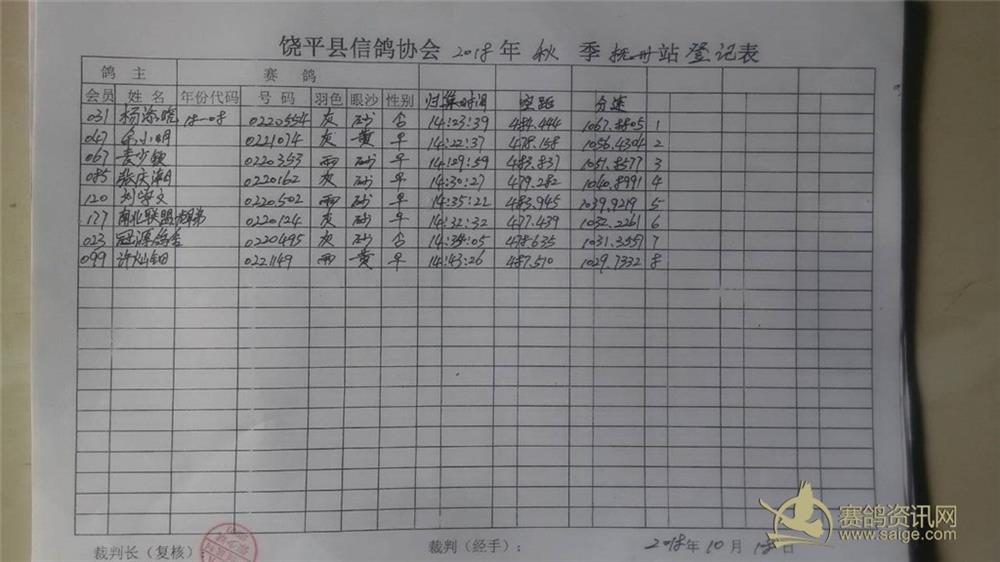 饶平县信鸽协会 2018 年 秋 季 抚州 站 登记表
鸽 主 赛 鸽
会员 姓 名 年份代码 号 码 羽色 眼沙 性别 归巢时间 空距 分速
031 杨添 18-08 0220554 灰 砂 14:23:39 484.444 1067.8805 1
047 余小明 0221074 灰 黄 14:22:37 478.158 1056.4304 2
067 0220353 雨 砂 14:29:59 483.837 1051.8577 3
085 张庆 0220162 灰 砂 14:30:27 479.282 1040.8991 4
120 刘 文 0220502 雨 砂 14:35:22 483.945 1039.9219 5
177 南北联盟 0220124 灰 砂 14:32:32 477.439 1032.2261 6
023 冠源鸽舍 0220495 灰 砂 14:34:05 478.635 1031.3559 7
099 许灿钿 0221149 雨 黄 14:43:26 487.510 1029.7332 8
裁判长（复核） 裁判（经手）： 2018 年 10 月 18 日
赛鸽资讯网
www.saige.com